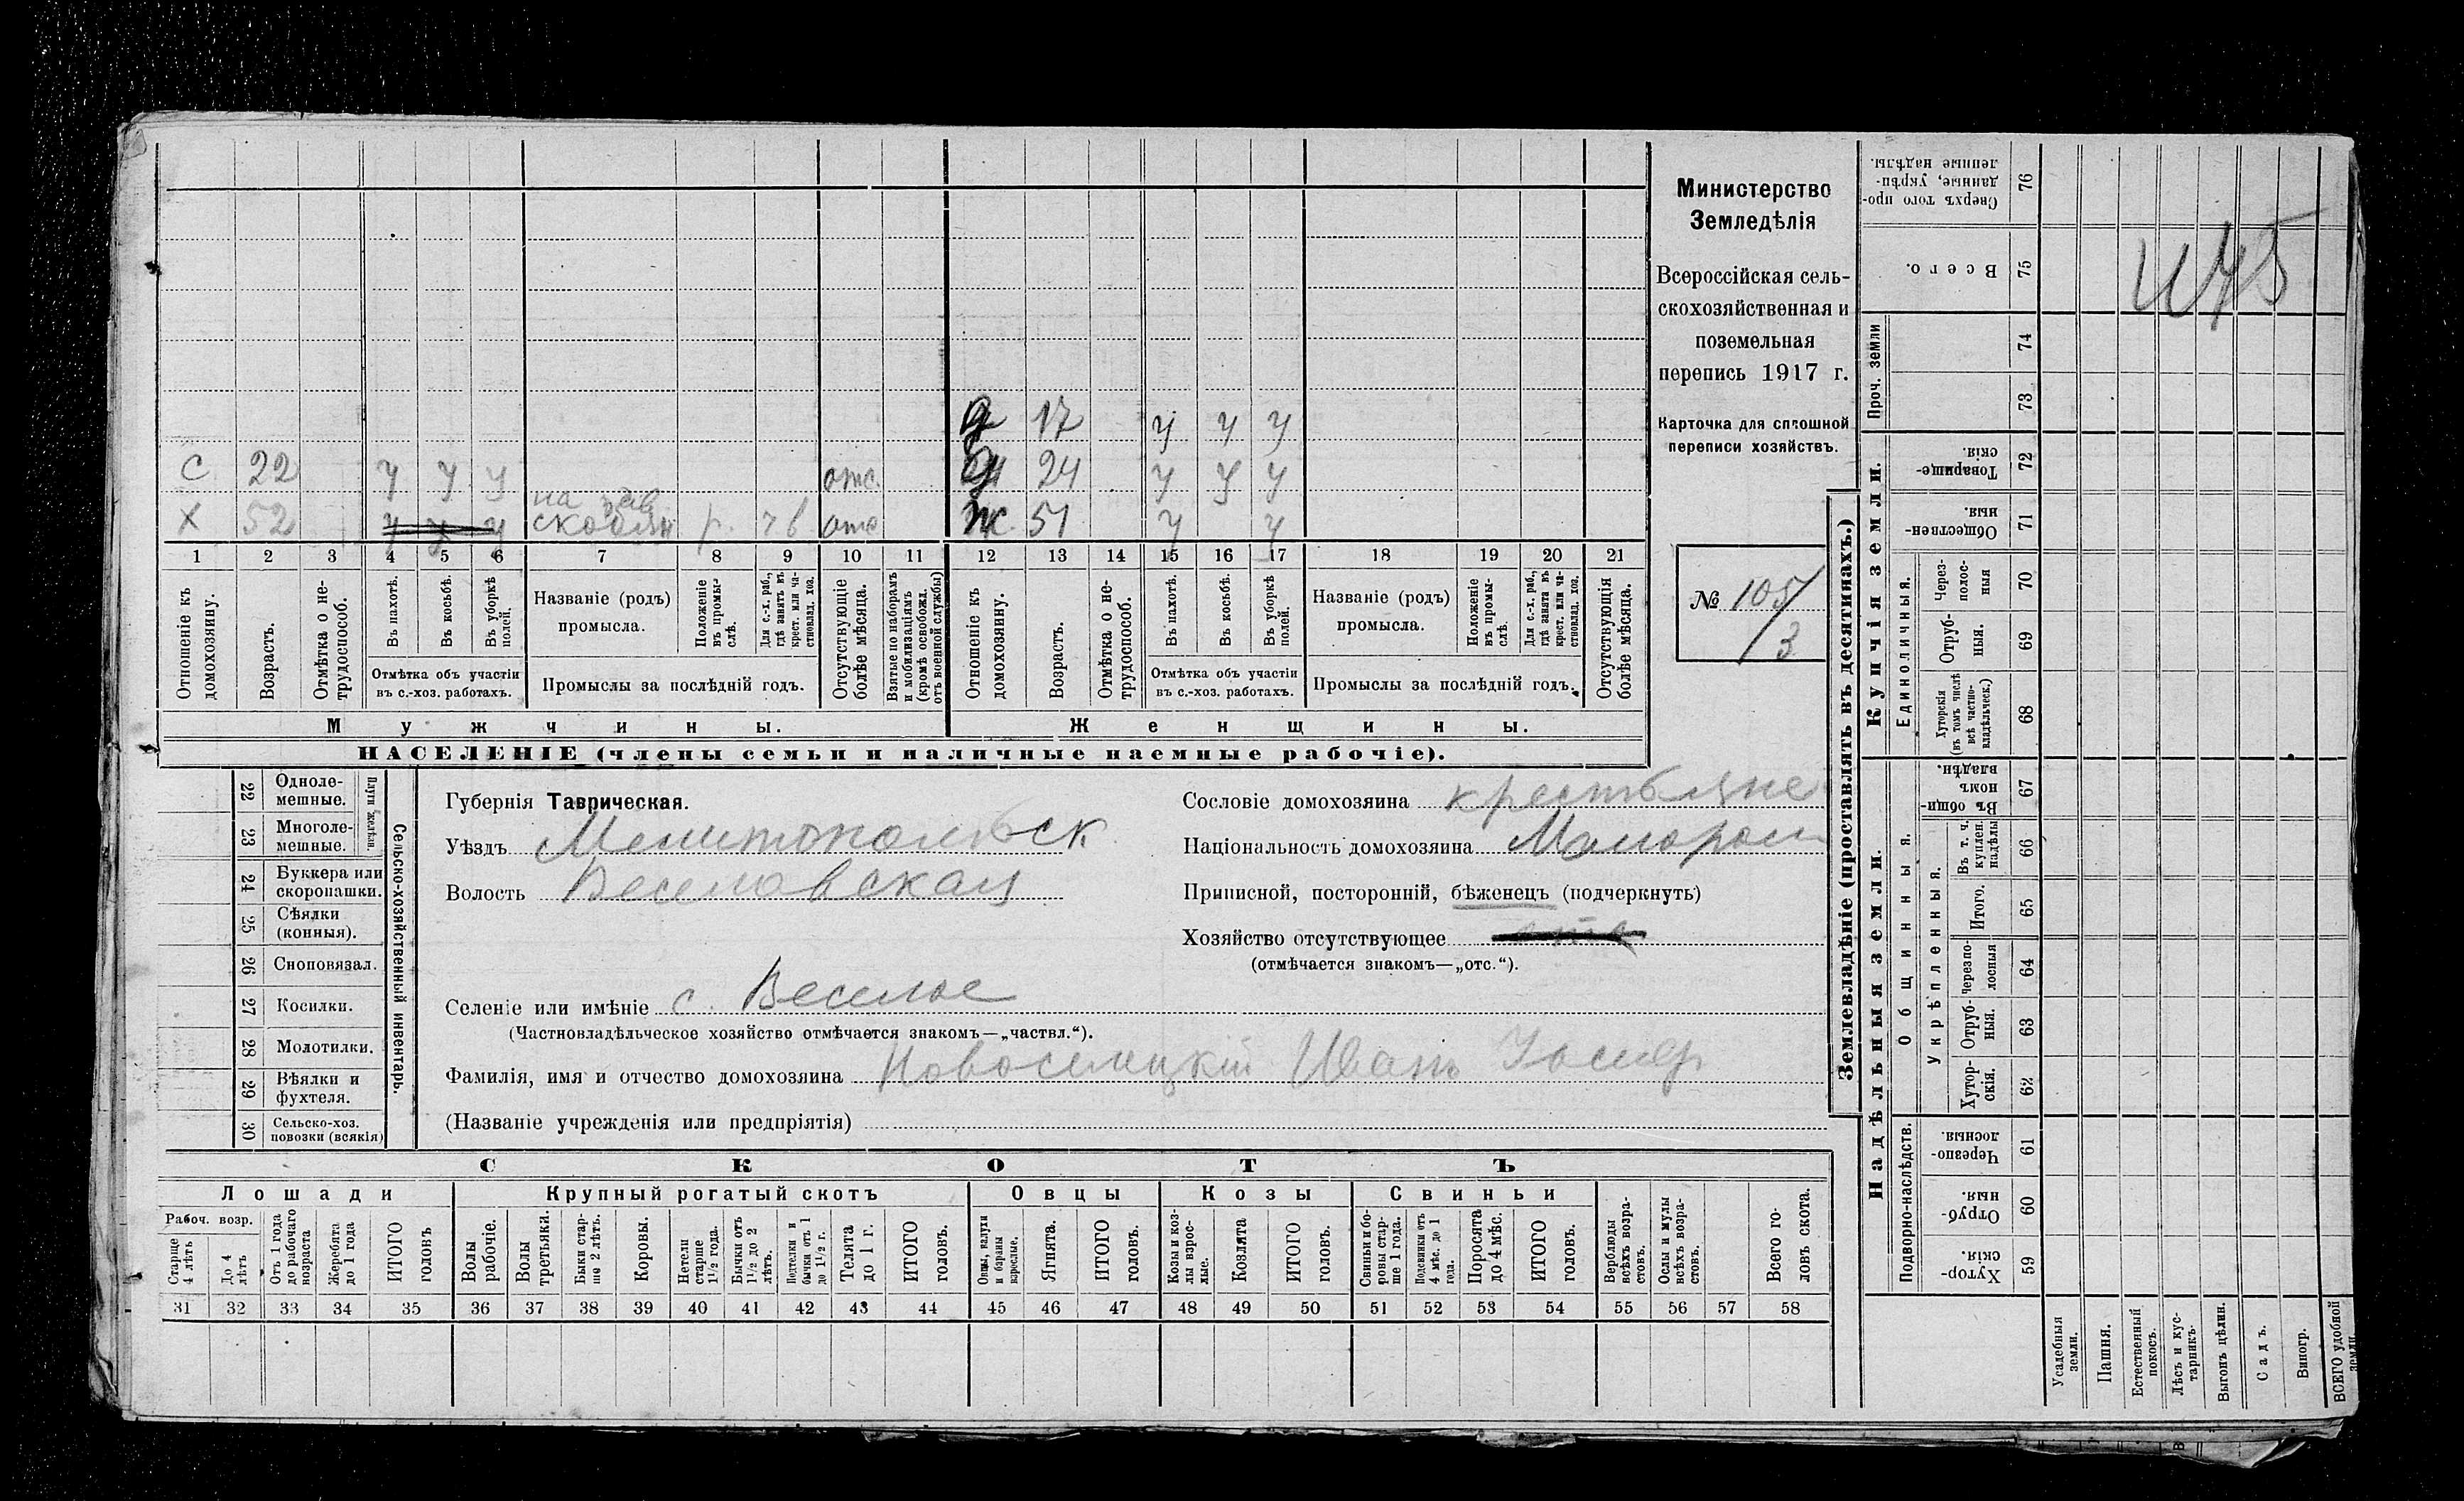 С 22 у у у отс.
Х 52 у у у на р. отс
Д 17 у у у
Д 24 у у у
Ж 51 у у
1 2 3 4 5 6 7 8 9 10 11 12 13 14 15 16 17 18 19 20 21
Отношеніе къ домохозяину.
Возрастъ.
Отмѣтка о не-
трудоспособ.
Въ пахотѣ.
Въ косьбѣ.
Въ уборкѣ полей.
Отмѣтка объ участіи
въ с.-хоз. работахъ.
Названіе (родъ)
промысла.
Положеніе въ промы-
слѣ.
Для с.-х. раб.,
гдѣ занятъ въ
крест. или ча-
стновлад. хоз.
Промыслы за послѣдній годъ.
Отсутствующіе
болѣе мѣсяца.
Взятые по наборамъ
и мобилизаціямъ
(кромѣ освобожд.
отъ военной службы)
Отношеніе къ
домохозяину.
Возрастъ.
Отмѣтка о не-
трудоспособ.
Въ пахотѣ.
Въ косьбѣ.
Въ уборкѣ
полей.
Отмѣтка объ участіи
въ с.-хоз. работахъ.
Названіе (родъ)
промысла.
Положеніе
въ промы-
слѣ.
Для с.-х. раб.,
гдѣ занята въ
крест. или ча-
стновлад. хоз.
Промыслы за послѣдній годъ.
Отсутствующія
болѣе мѣсяца.
Мужчины.
Женщины.
НАСЕЛЕНІЕ (члены семьи и наличные наемные рабочіе).
Министерство
Земледѣлія
Всероссійская сель-
скохозяйственная и
поземельная
перепись 1917 г.
Карточка для сплошной
переписи хозяйствъ.
№ 105/3
22 Одноле-
мешные.
23 Многоле-
мешные.
Плуги желѣзн.
24 Буккера или
скоропашки.
25 Сѣялки
(конныя).
26 Сноповязал.
27 Косилки.
28 Молотилки.
29 Вѣялки и
фухтеля.
30 Сельско-хоз.
повозки (всякія)
Сельско-хозяйственный инвентарь.
Губернія Таврическая.
Уѣздъ Мелитопольск
Волость Веселовская
Селеніе или имѣніе с. Веселое
(Частновладѣльческое хозяйство отмѣчается знакомъ—„частвл.“).
Фамилія, имя и отчество домохозяина Новоселецкій Иванъ Іосиф
(Названіе учрежденія или предпріятія)
Сословіе домохозяина крестьяне
Національность домохозяина Малорос
Приписной, посторонній, бѣженецъ (подчеркнуть)
Хозяйство отсутствующее отс
(отмѣчается знакомъ—„отс.“).
СКОТЪ
Лошади
Рабоч. возр.
Старше
4 лѣтъ
До 4
лѣтъ
Отъ 1 года
до рабочаго
возраста
Жеребята
до 1 года
ИТОГО
головъ
Крупный рогатый скотъ
Волы
рабочіе.
Волы
третьяки.
Быки стар-
ше 2 лѣтъ.
Коровы.
Нетели
старше
1½ года.
Бычки отъ
1½ до 2
лѣтъ.
Подтелки и
бычки отъ 1
до 1½ г.
Телята
до 1 г.
ИТОГО
головъ.
Овцы
Овцы, валухи
и бараны
взрослые.
Ягнята.
ИТОГО
головъ.
Козы
Козы и коз-
лы взрос-
лые.
Козлята
ИТОГО
головъ.
Свиньи
Свиньи и бо-
ровы стар-
ше 1 года.
Подсвинки отъ
4 мѣс. до 1
года.
Поросята
до 4 мѣс.
ИТОГО
головъ.
Верблюды
всѣхъ возра-
стовъ.
Ослы и мулы
всѣхъ возра-
стовъ.
Всего го-
ловъ скота.
31 32 33 34 35 36 37 38 39 40 41 42 43 44 45 46 47 48 49 50 51 52 53 54 55 56 57 58
Землевладѣніе (проставлять въ десятинахъ.)
Сверхъ того про-
данные, укрѣп-
ленные надѣлы.
76
Всего.
75
Проч. земли
74
73
Купчія земли.
Товарище-
скія.
72
Обществен-
ныя.
71
Единоличныя.
Через-
полос-
ныя
70
Отруб-
ныя.
69
Хуторскія
(въ томъ числѣ
всѣ частно-
владѣльческ.)
68
Надѣльныя земли.
Общинныя.
Въ общин-
номъ
владѣн.
67
Укрѣпленныя.
Въ т. ч.
куплен.
надѣлы
66
Итого.
65
Черезпо-
лосныя
64
Отруб-
ныя.
63
Хутор-
скія.
62
Подворно-наслѣдств.
Черезпо-
лосныя.
61
Отруб-
ныя.
60
Хутор-
скія.
59
Усадебныя
земли.
Пашня.
Естественный
покосъ.
Лѣсъ и кус-
тарникъ.
Выгонъ цѣлин.
Садъ.
Виногр.
ВСЕГО удобной
земли